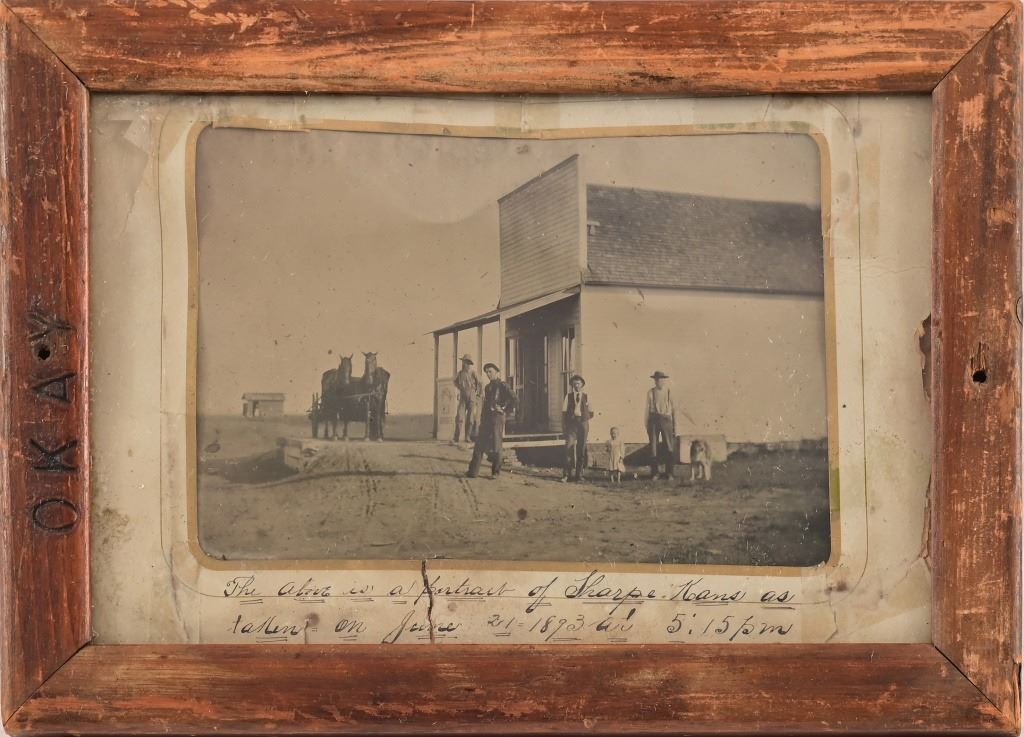 OKAY
The above is a portrait of Sharpe Kans as
taken on June 21 - 1893 at 5:15 pm